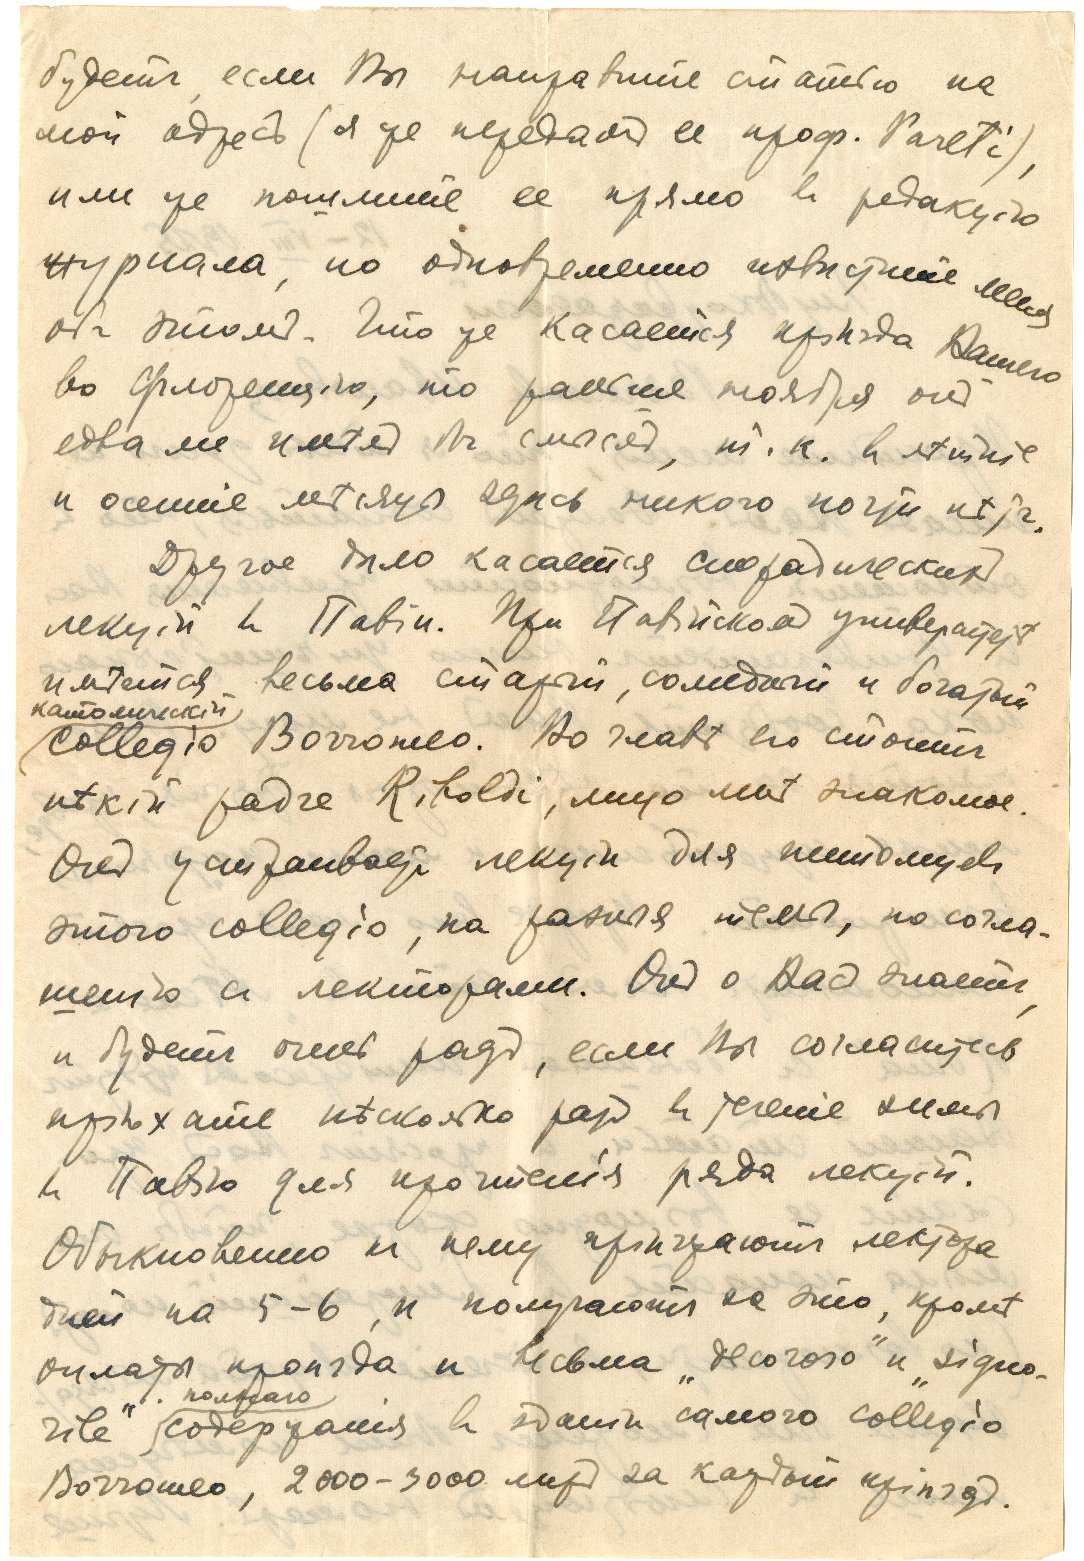 будетъ, если Вы направите статью на
мой адресъ (я же передамъ ее проф. Pareti),
или же пошлите ее прямо въ редакцію
журнала, но одновременно извѣстите меня
объ этомъ. Что же касается пріѣзда Вашего
во Флоренцію, то раньше ноября онъ
едва ли имѣлъ бы смыслъ, т. к. въ лѣтніе
и осенніе мѣсяцы здѣсь никого почти нѣтъ.
Другое дѣло касается спорадическихъ
лекцій въ Павіи. При Павійскомъ университетѣ
имѣется весьма старый, солидный и богатый
католическій
collegio Borromeo. Во главѣ его стоитъ
нѣкій padre Riboldi, лицо мнѣ знакомое.
Онъ устраиваетъ лекціи для питомцевъ
этого collegio, на разныя темы, по согла-
шенію съ лекторами. Онъ о Васъ знаетъ,
и будетъ очень радъ, если Вы согласитесь
пріѣхать нѣсколько разъ въ теченіе зимы
въ Павію для прочтенія ряда лекцій.
Обыкновенно къ нему пріѣзжаютъ лектора
дней на 5-6, и получаютъ за это, кромѣ
оплаты проѣзда и весьма „decoroso" и „signo-
полнаго
rile" содержанія въ зданіи самого collegio
Borromeo, 2000-3000 лиръ за каждый пріѣздъ.